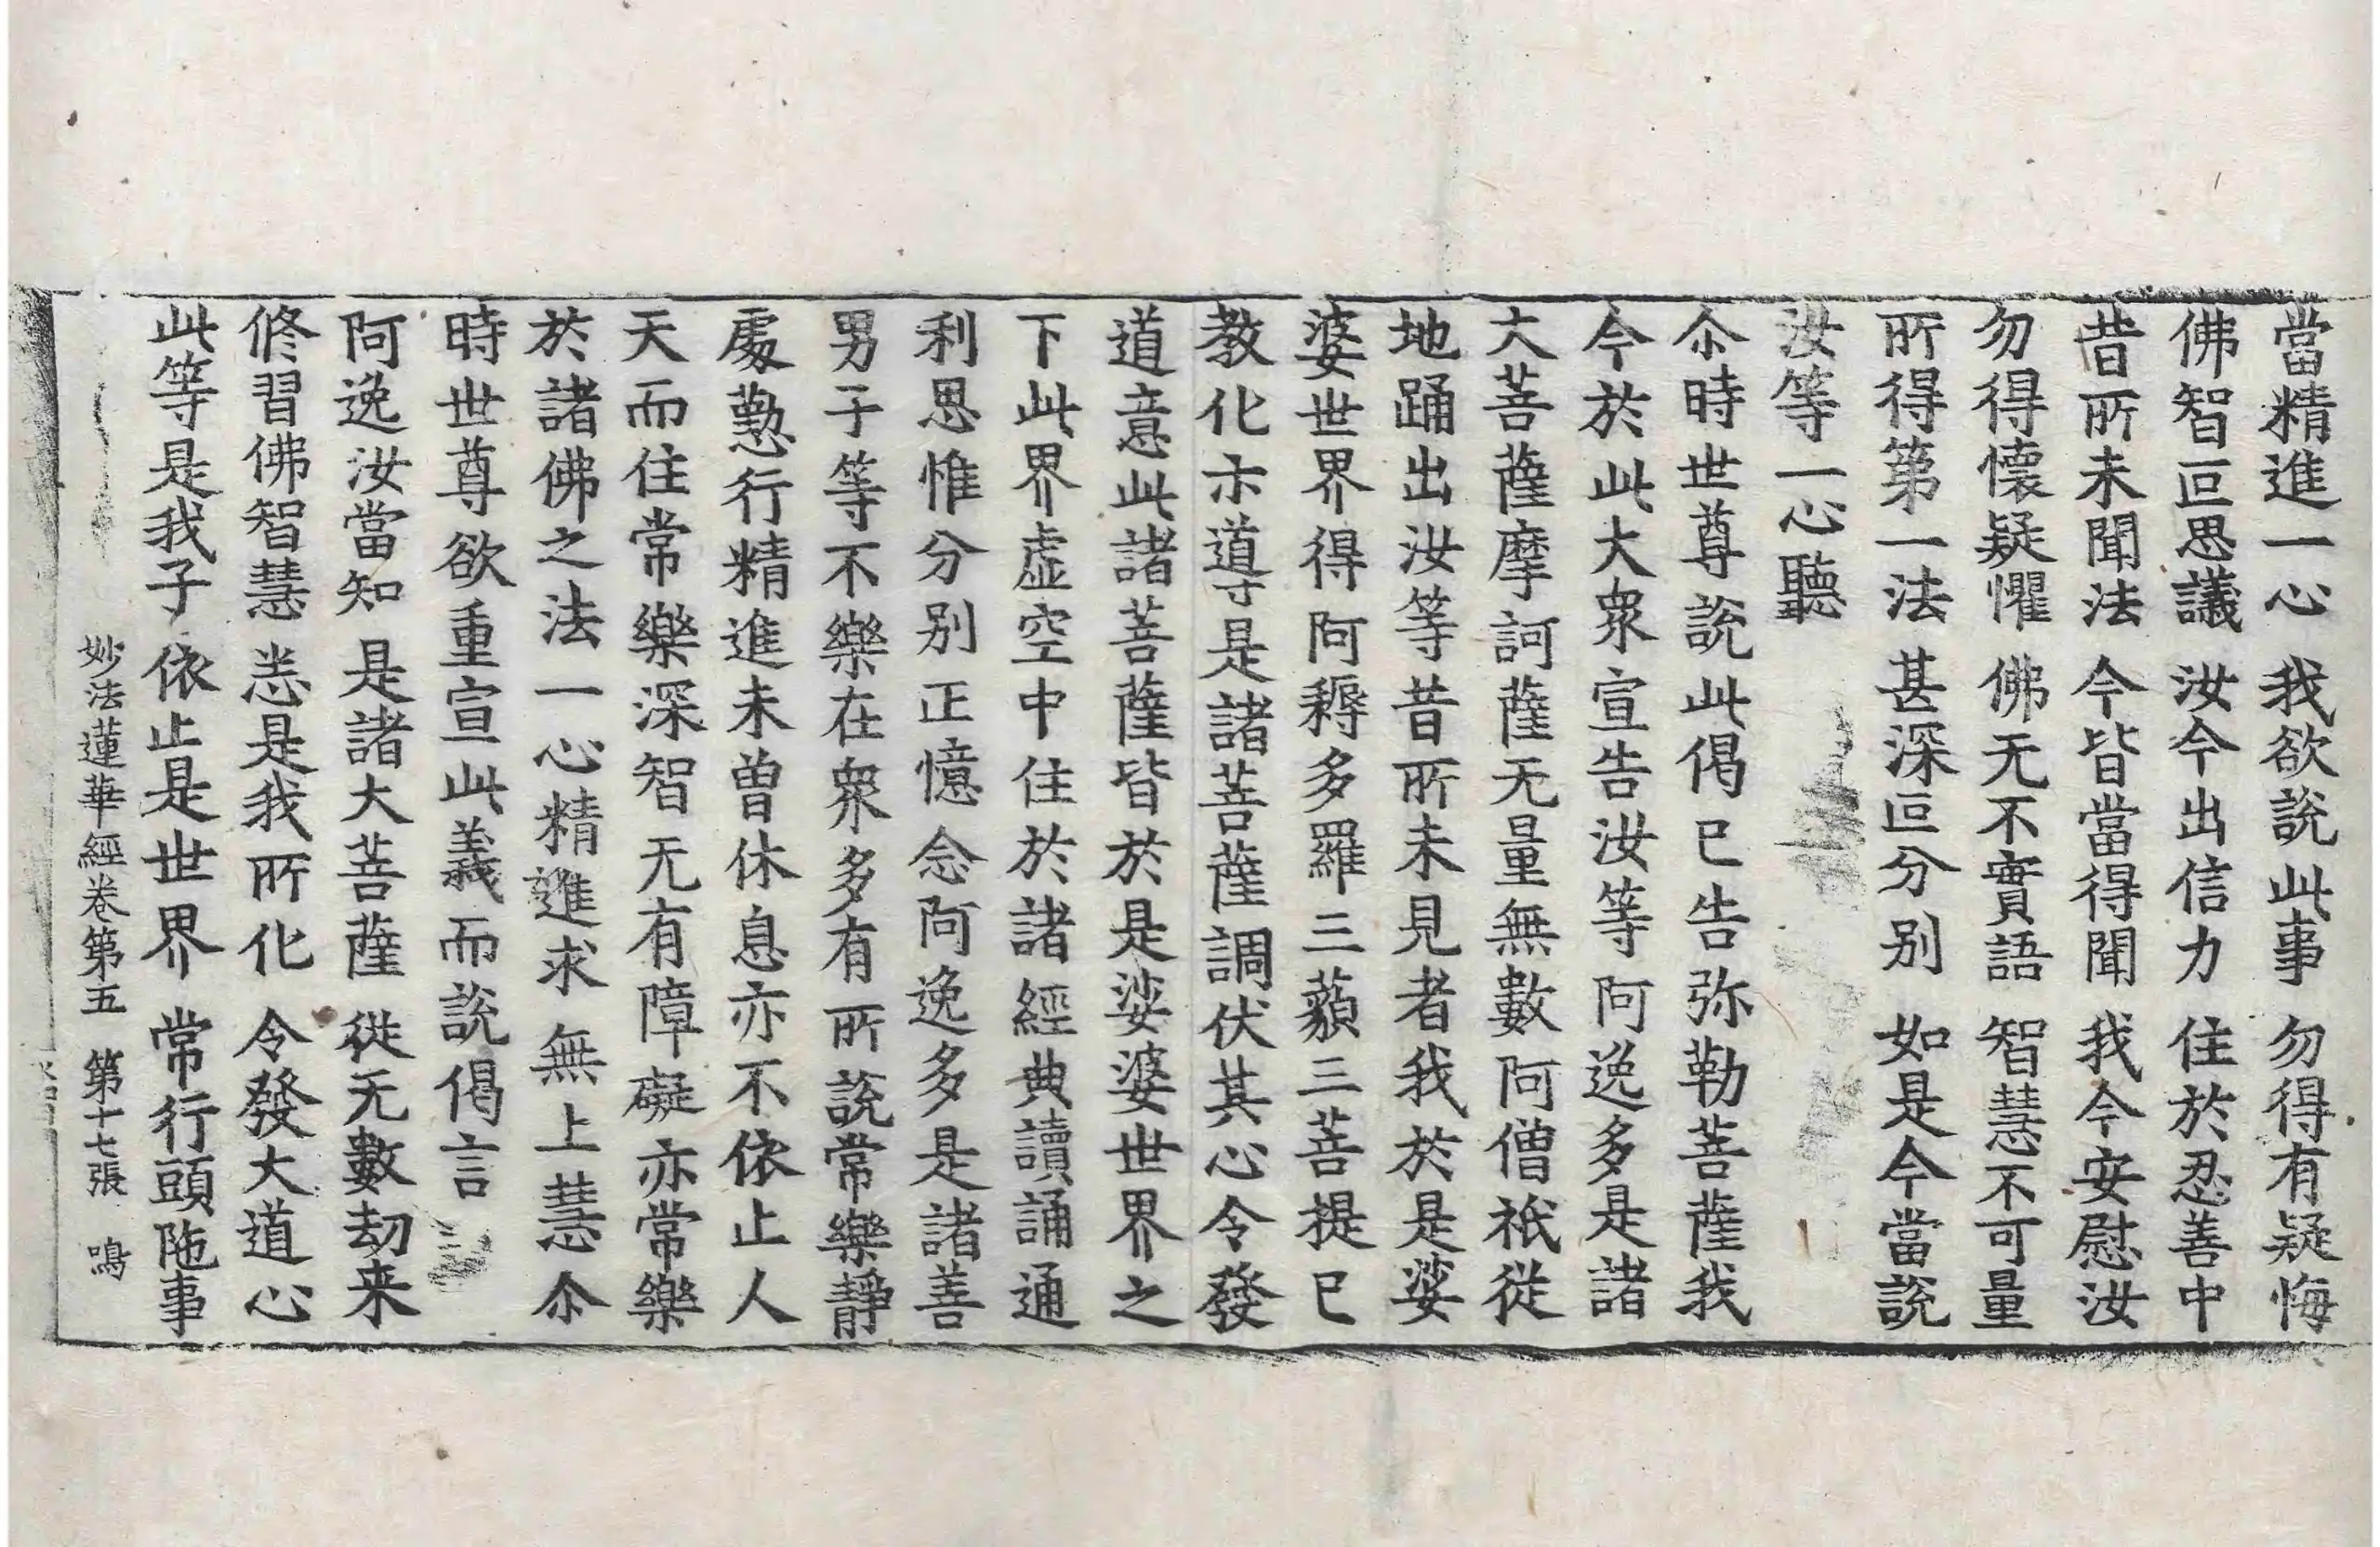 當精進一心 我欲說此事 勿得有疑悔
佛智叵思議 汝今出信力 住於忍善中
昔所未聞法 今皆當得聞 我今安慰汝
勿得懷疑懼 佛无不實語 智慧不可量
所得第一法 甚深叵分别 如是今當說
汝等一心聽
尒時世尊說此偈已告弥勒菩薩我
今於此大衆宣告汝等阿逸多是諸
大菩薩摩訶薩无量無數阿僧祇從
地踊出汝等昔所未見者我於是娑
婆世界得阿耨多羅三藐三菩提已
教化示導是諸菩薩調伏其心令發
道意此諸菩薩皆於是娑婆世界之
下此界虛空中住於諸經典讀誦通
利思惟分别正憶念阿逸多是諸善
男子等不樂在衆多有所說常樂靜
處懃行精進未曾休息亦不依止人
天而住常樂深智无有障礙亦常樂
於諸佛之法一心精進求無上慧尒
時世尊欲重宣此義而說偈言
阿逸汝當知 是諸大菩薩 從无數劫来
修習佛智慧 悉是我所化 令發大道心
此等是我子 依止是世界 常行頭陁事
妙法蓮華經卷第五 第十七張 鳴